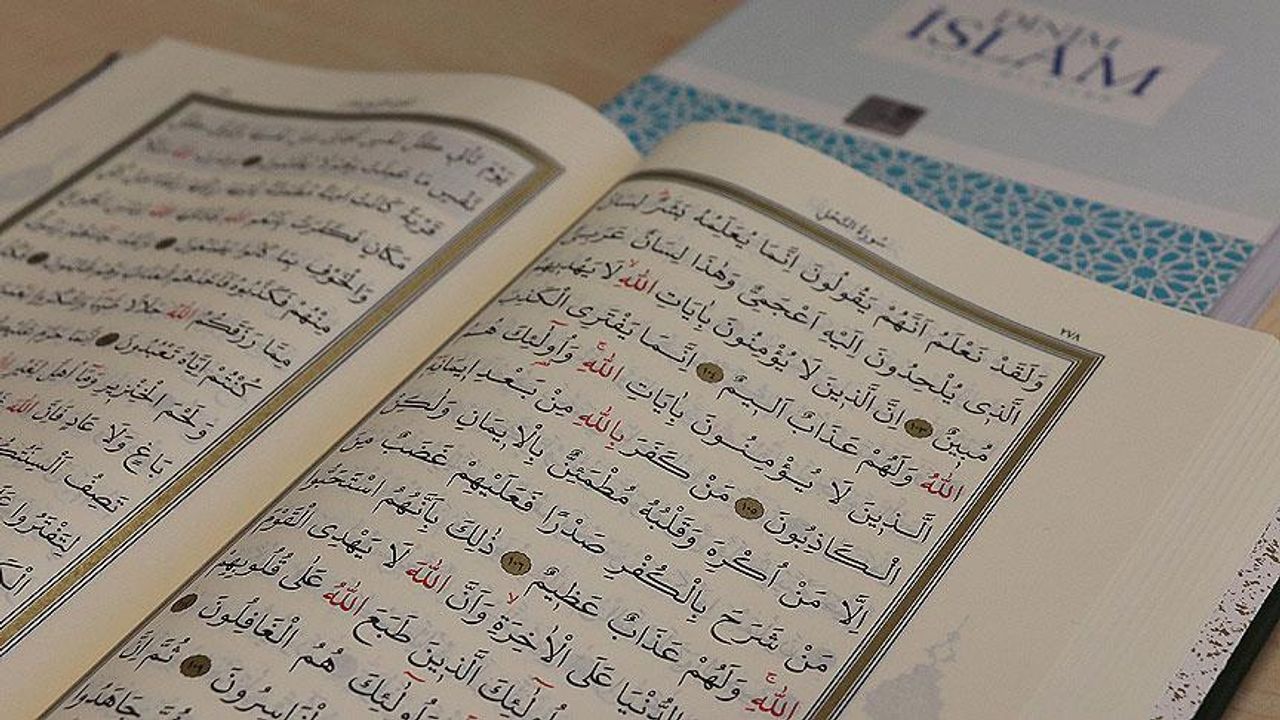 DİNİM
İSLAM
سُورَةُ النَّحْلِ
٢٧٨
وَلَقَدْ نَعْلَمُ اَنَّهُمْ يَقُولُونَ اِنَّمَا يُعَلِّمُهُ بَشَرٌ لِسَانُ
الَّذ۪ي يُلْحِدُونَ اِلَيْهِ اَعْجَمِيٌّ وَهٰذَا لِسَانٌ عَرَبِيٌّ
مُب۪ينٌ ١٠٣ اِنَّ الَّذ۪ينَ لَا يُؤْمِنُونَ بِاٰيَاتِ اللّٰهِ لَا يَهْد۪يهِمُ
اللّٰهُ وَلَهُمْ عَذَابٌ اَل۪يمٌ ١٠٤ اِنَّمَا يَفْتَرِي الْكَذِبَ
الَّذ۪ينَ لَا يُؤْمِنُونَ بِاٰيَاتِ اللّٰهِ وَاُو۬لٰٓئِكَ هُمُ
الْكَاذِبُونَ ١٠٥ مَنْ كَفَرَ بِاللّٰهِ مِنْ بَعْدِ ا۪يمَانِه۪
اِلَّا مَنْ اُكْرِهَ وَقَلْبُهُ مُطْمَئِنٌّ بِالْا۪يمَانِ وَلٰكِنْ
مَنْ شَرَحَ بِالْكُفْرِ صَدْرًا فَعَلَيْهِمْ غَضَبٌ مِنَ
اللّٰهِ وَلَهُمْ عَذَابٌ عَظ۪يمٌ ١٠٦ ذٰلِكَ بِاَنَّهُمُ اسْتَحَبُّوا
الدُّنْيَا عَلَى الْاٰخِرَةِ وَاَنَّ اللّٰهَ لَا يَهْدِي الْقَوْمَ
اُو۬لٰٓئِكَ الَّذ۪ينَ طَبَعَ اللّٰهُ عَلٰى قُلُوبِهِمْ
وَاُو۬لٰٓئِكَ هُمُ الْغَافِلُونَ
الْخَاسِرُونَ ١٠٩ ثُمَّ اِنَّ
ثُمَّ جَاهَدُوا
يَوْمَ تَأْت۪ي كُلُّ نَفْسٍ
نَفْسٍ مَا عَمِلَتْ وَهُمْ لَا يُظْلَمُونَ
قَرْيَةً كَانَتْ اٰمِنَةً مُطْمَئِنَّةً
مَكَانٍ فَكَفَرَتْ بِاَنْعُمِ اللّٰهِ
وَالْخَوْفِ بِمَا كَانُوا يَصْنَعُونَ
مِنْهُمْ فَكَذَّبُوهُ فَاَخَذَهُمُ الْعَذَابُ
مِمَّا رَزَقَكُمُ اللّٰهُ حَلَالًا طَيِّبًا وَاشْكُرُوا
كُنْتُمْ اِيَّاهُ تَعْبُدُونَ اِنَّمَا حَرَّمَ عَلَيْكُمُ
وَلَحْمَ الْخِنْز۪يرِ وَمَٓا اُهِلَّ لِغَيْرِ
بَاغٍ وَلَا عَادٍ فَاِنَّ اللّٰهَ
تَصِفُ اَلْسِنَتُكُمُ
لِتَفْتَرُوا